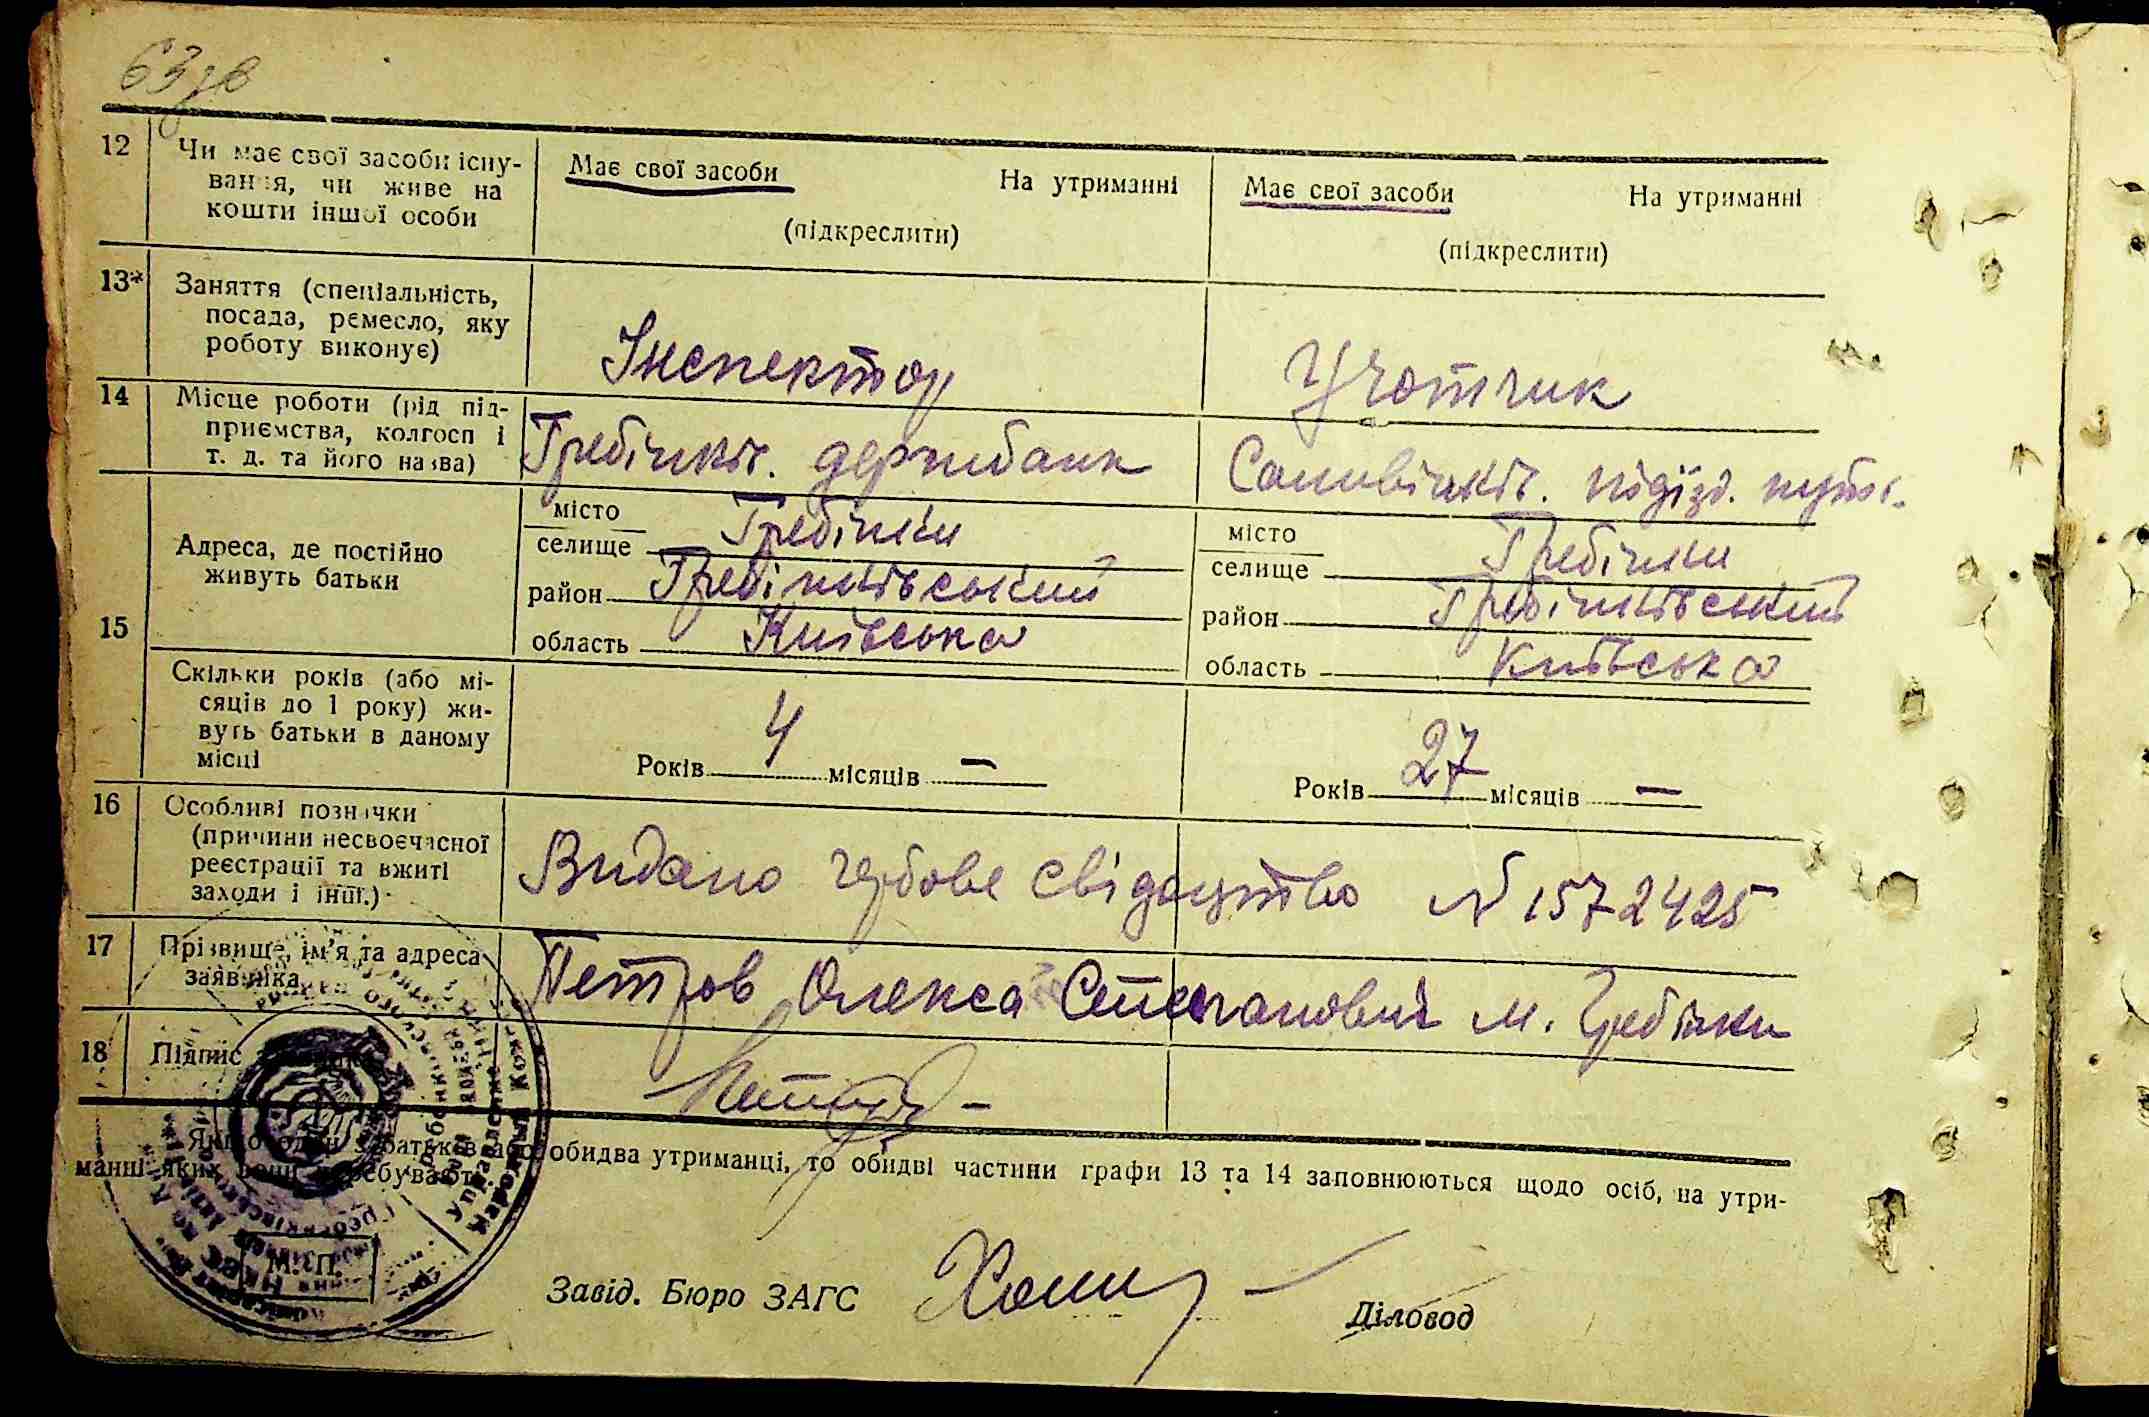 63зв
12 Чи має свої засоби існу-
вання, чи живе на
кошти іншої особи
Має свої засоби На утриманні
(підкреслити)
Має свої засоби На утриманні
(підкреслити)
13* Заняття (спеціальність,
посада, ремесло, яку
роботу виконує)
Інспектор
Учотчик
14 Місце роботи (рід під-
приємства, колгосп і
т. д. та його назва)
Гребінків. держбанк
Саливінків. подїзд. путь
15 Адреса, де постійно
живуть батьки
місто
селище Гребінки
район Гребінківський
область Київська
місто
селище Гребінки
район Гребінківський
область Київська
Скільки років (або мі-
сяців до 1 року) жи-
вуть батьки в даному
місці
Років 4 місяців —
Років 27 місяців —
16 Особливі позначки
(причини несвоєчасної
реєстрації та вжиті
заходи і інш.)
Видано гербове свідоцтво № 1572425
17 Прізвище, ім'я та адреса
заявника
Петров Олекса Степанович м. Гребінки
18 Підпис
Якщо один з батьків або обидва утриманці, то обидві частини графи 13 та 14 заповнюються щодо осіб, на утри-
манні яких вони перебувають.
М. П.
Завід. Бюро ЗАГС
Діловод